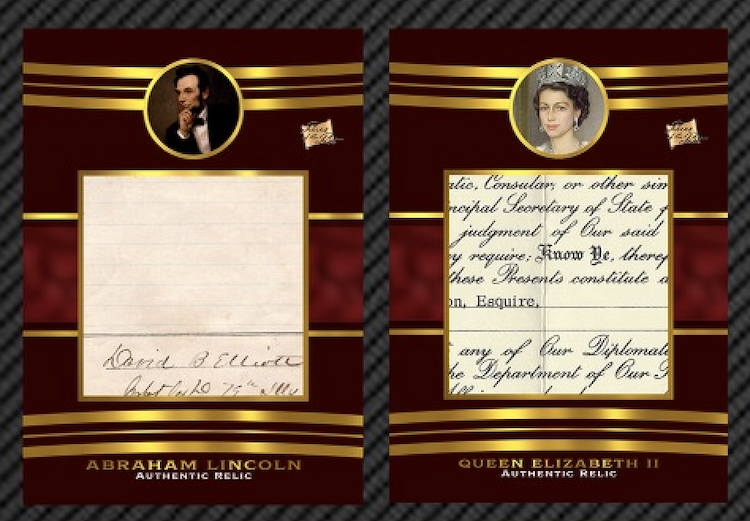 David B Elliott
79th Ills
ABRAHAM LINCOLN
AUTHENTIC RELIC
atic, Consular, or other sim
ncipal Secretary of State f
judgment of Our said
y require; Know Ye, theref
these Presents constitute a
on, Esquire,
any of Our Diplomati
he Department of Our F
QUEEN ELIZABETH II
AUTHENTIC RELIC